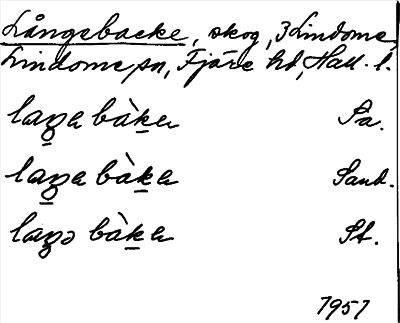 Långebacke, skog, 3 Lindome,
Lindome sn, Fjäre hd, Hall. l.
laŋa bàka Sa.
laŋa bàka Sand.
laŋə bàka St.
1951